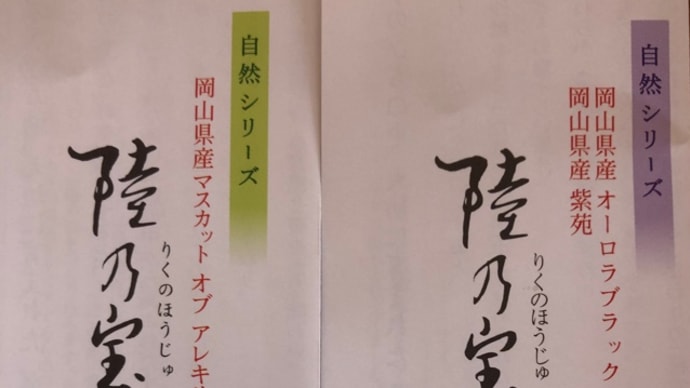 自然シリーズ
岡山県産マスカット オブ アレキ
りくのほうじゅ
陸乃宝
自然シリーズ
岡山県産 オーロラブラック
岡山県産 紫苑
りくのほうじゅ
陸乃宝